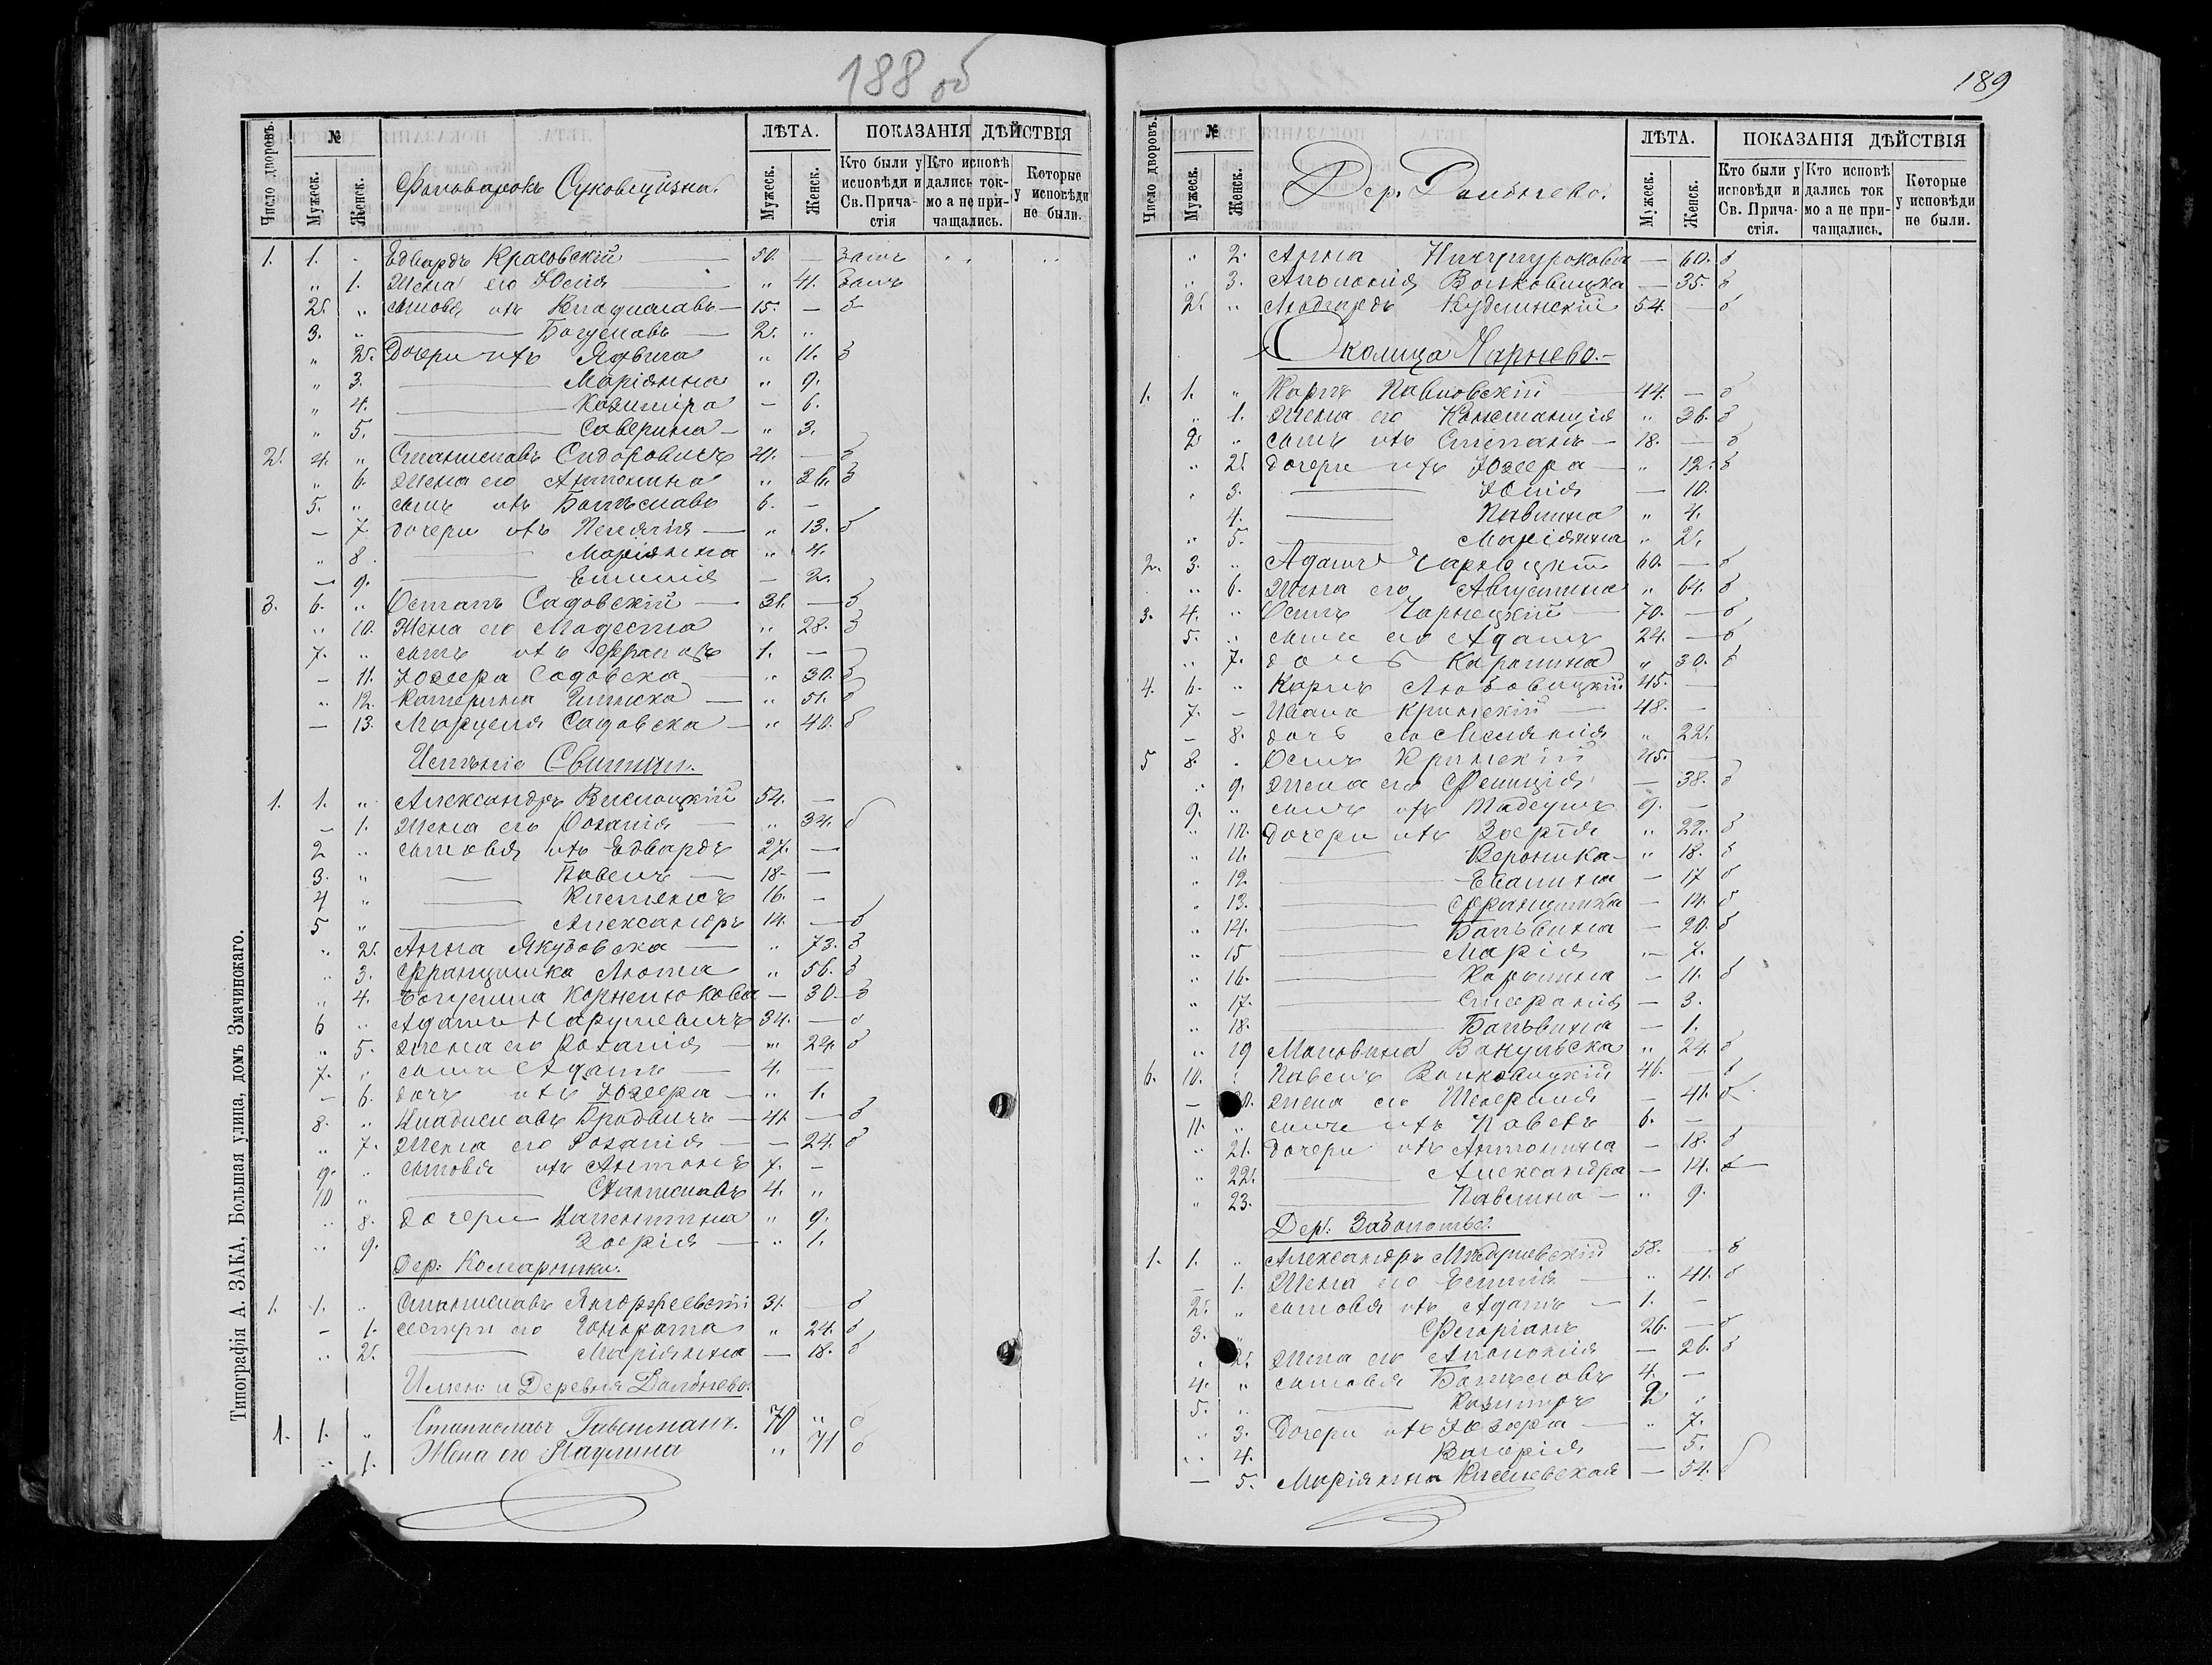 188 об
Число дворовъ. № ЛѢТА. ПОКАЗАНІЯ ДѢЙСТВІЯ
Мужеск. Женск. Фольварокъ Суковщизна. Мужеск. Женск. Кто были у исповѣди и Св. Прича-стія Кто исповѣ дались ток-мо а не при-чащались. Которые у исповѣди не были.
1. 1. Едвардъ Красовскій — 50. —
„ 1. Жена его Юлія „ 41.
2. „ сыновя ихъ Владиславъ — 15. — б
3. „ — Богуславъ — 2. „
„ 2. Дочери ихъ Ядвига „ 11. б
„ 3. — Маріянна „ 9.
„ 4. — Казиміра — 6.
„ 5. — Саверина — „ 3.
2. 4. „ Станиславъ Сидоровичъ 41. — б
„ 6. Жена его Антонина „ 36. б
5. „ сынъ ихъ Болѣславъ 6. —
— 7. дочери ихъ Пелагія — „ 13. б
„ 8. — Маріянна „ 4.
— 9. — Емилія — 2.
3. 6. „ Осипъ Садовскій — 31. — б
„ 10. Жена его Модеста „ 28. б
7. „ сынъ ихъ 1. —
— 11. Юзефа Садовска „ 30. б
„ 12. Катерина „ 51. б
— 13. Марцеля Садовска — „ 40. б
Имѣніе
1. 1. „ Александръ Высоцкій 54. —
— 1. Жена его Розалія — „ 34. б
2 „ сыновя ихъ Едвардъ 27. —
3. „ — Павелъ — 18 —
4 „ — 16. —
5 „ — Александръ 14. — б
„ 2. Анна Якубовска — „ 73. б
„ 3. Францишка „ 56. б
„ 4. Корнелюкова — 30 — б
6 „ Адамъ Нарушевичъ 34. — б
„ 5. Жена его Розалія — „ 24. б
7. „ сынъ Адамъ — 4. —
— 6. дочь ихъ Юзефа — „ 1.
8. „ Владиславъ 41 — б
„ 7. Жена его Розалія — — 24. б
9. „ сыновя ихъ Антонъ 7. —
10 „ — Станиславъ 4. „
„ 8. Дочери Валентина „ 9.
„ 9. Зофія — „ 1.
Дер: Комарники.
1. 1. „ Станиславъ 31. — б
— 1. сестры его Гонората „ 24. б
„ 2. — Маріянна — 18. б
Имен: и Деревня
1. 1. „ Станиславъ 70 „ б
„ 1. Жена его Паулина „ 71 б
Типографія А. ЗАКА, Большая улица, домъ Змачинскаго.
189
Число дворовъ. № ЛѢТА. ПОКАЗАНІЯ ДѢЙСТВІЯ
Мужеск. Женск. Дер. Мужеск. Женск. Кто были у исповѣди и Св. Прича-стія. Кто исповѣ дались ток мо а не при-чащались. Которые у исповѣди не были.
„ 2. Анна — 60. б
„ 3. Аполонія Волковицка — 35. б
2. „ 54. — б
Околица Чарнево. —
1. 1. „ Карлъ Павловскій — 44. — б
„ 1. Жена его Констанція „ 36. б
2 „ сынъ ихъ Степанъ — 18. — б
„ 2. дочери ихъ Юзефа — „ 12. б
„ 3. — Юлія — 10.
4. — Павлина „ 4.
„ 5. — Маріянна „ 2.
2. 3. „ Адамъ Чарноцкій 60. — б
„ 6. Жена его Августина „ 64. б
3. 4. „ Осипъ Чарнецкій — 70. — б
5. „ сынъ его Адамъ 24. — б
„ 7. дочь Каролина „ 30. б
4. 6. „ Карлъ 45. —
7. — Иванъ Крынскій — 48. —
— 8. дочь его Меланія „ 22.
5 8. Осипъ Крынскій 45. —
„ 9. Жена его Фелиція — 38. б
9. „ сынъ ихъ Тадеушъ 9. —
„ 10. дочери ихъ Зофія „ 22. б
„ 11. — Вероника — „ 18. б
„ 12. — — 17 б
„ 13. — Францишка — 14. б
„ 14. — Бальбина — 20. б
„ 15 — Марія „ 7.
„ 16. — — 11. б
„ 17. — Стефанія — 3.
„ 18. — Бальбина — 1.
„ 19 „ 24. б
6. 10. „ Павелъ Волковицкій 46. — б
— 20. Жена его — 41. б
11. „ сынъ ихъ 6. —
„ 21. Дочери ихъ Антонина — 18. б
„ 22. — Александра — 14. б
„ 23. — Павлина — „ 9.
Дер: Заболотье.
1. 1. „ Александръ 58. — б
— 1. Жена его Емилія — „ 41. б
2. „ сыновя ихъ Адамъ — 1. —
3. „ Флоріанъ 26. — б
„ 2. Жена его Аполонія — 26. б
4. „ сыновя Болѣславъ 4. —
5. „ — Казиміръ 2 „
„ 3. Дочери ихъ Юзефа — „ 7.
„ 4. Валерія — 5.
— 5. Маріянна — 54. б